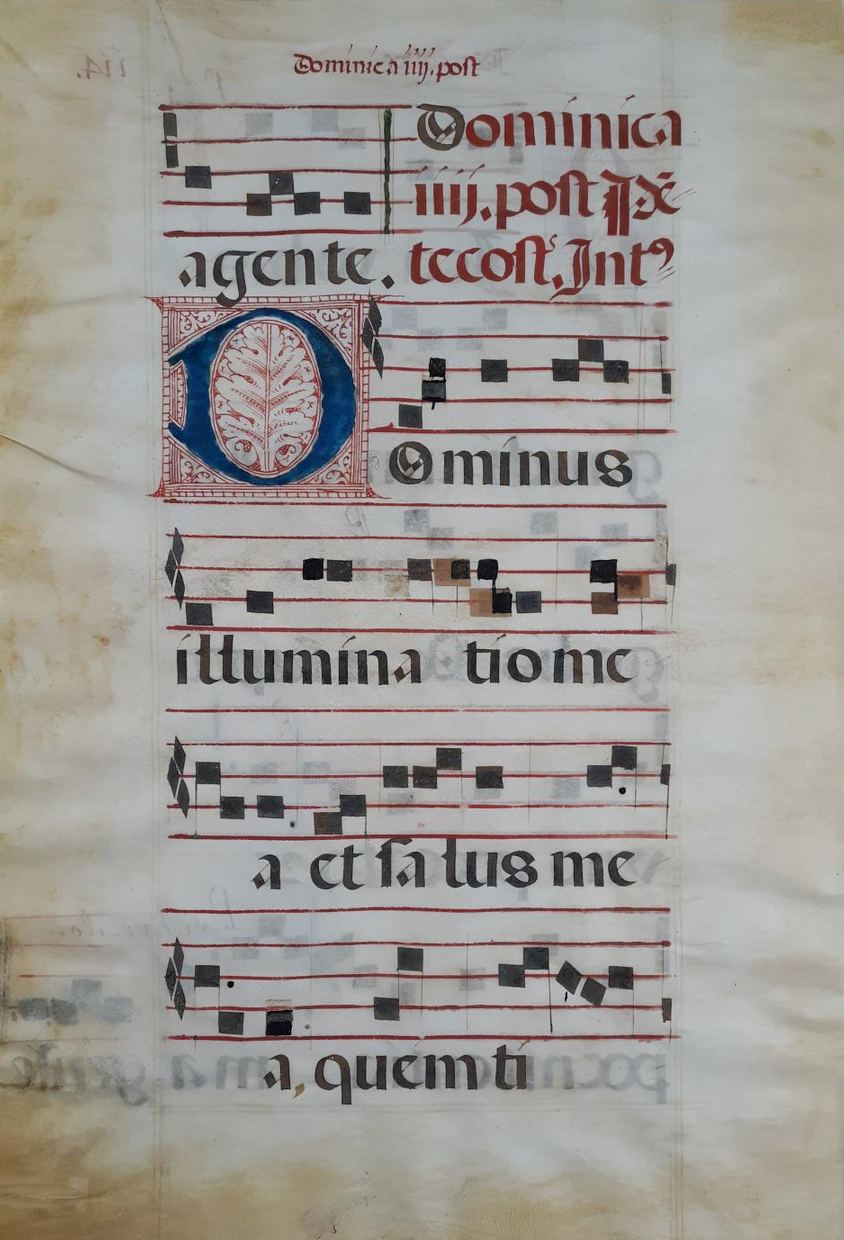 Dominica iiij. post
Dominica
iiij. post Pē
agente. tecosť. Intꝰ
DOminus
illumina tio me
a et sa lus me
a, quem ti